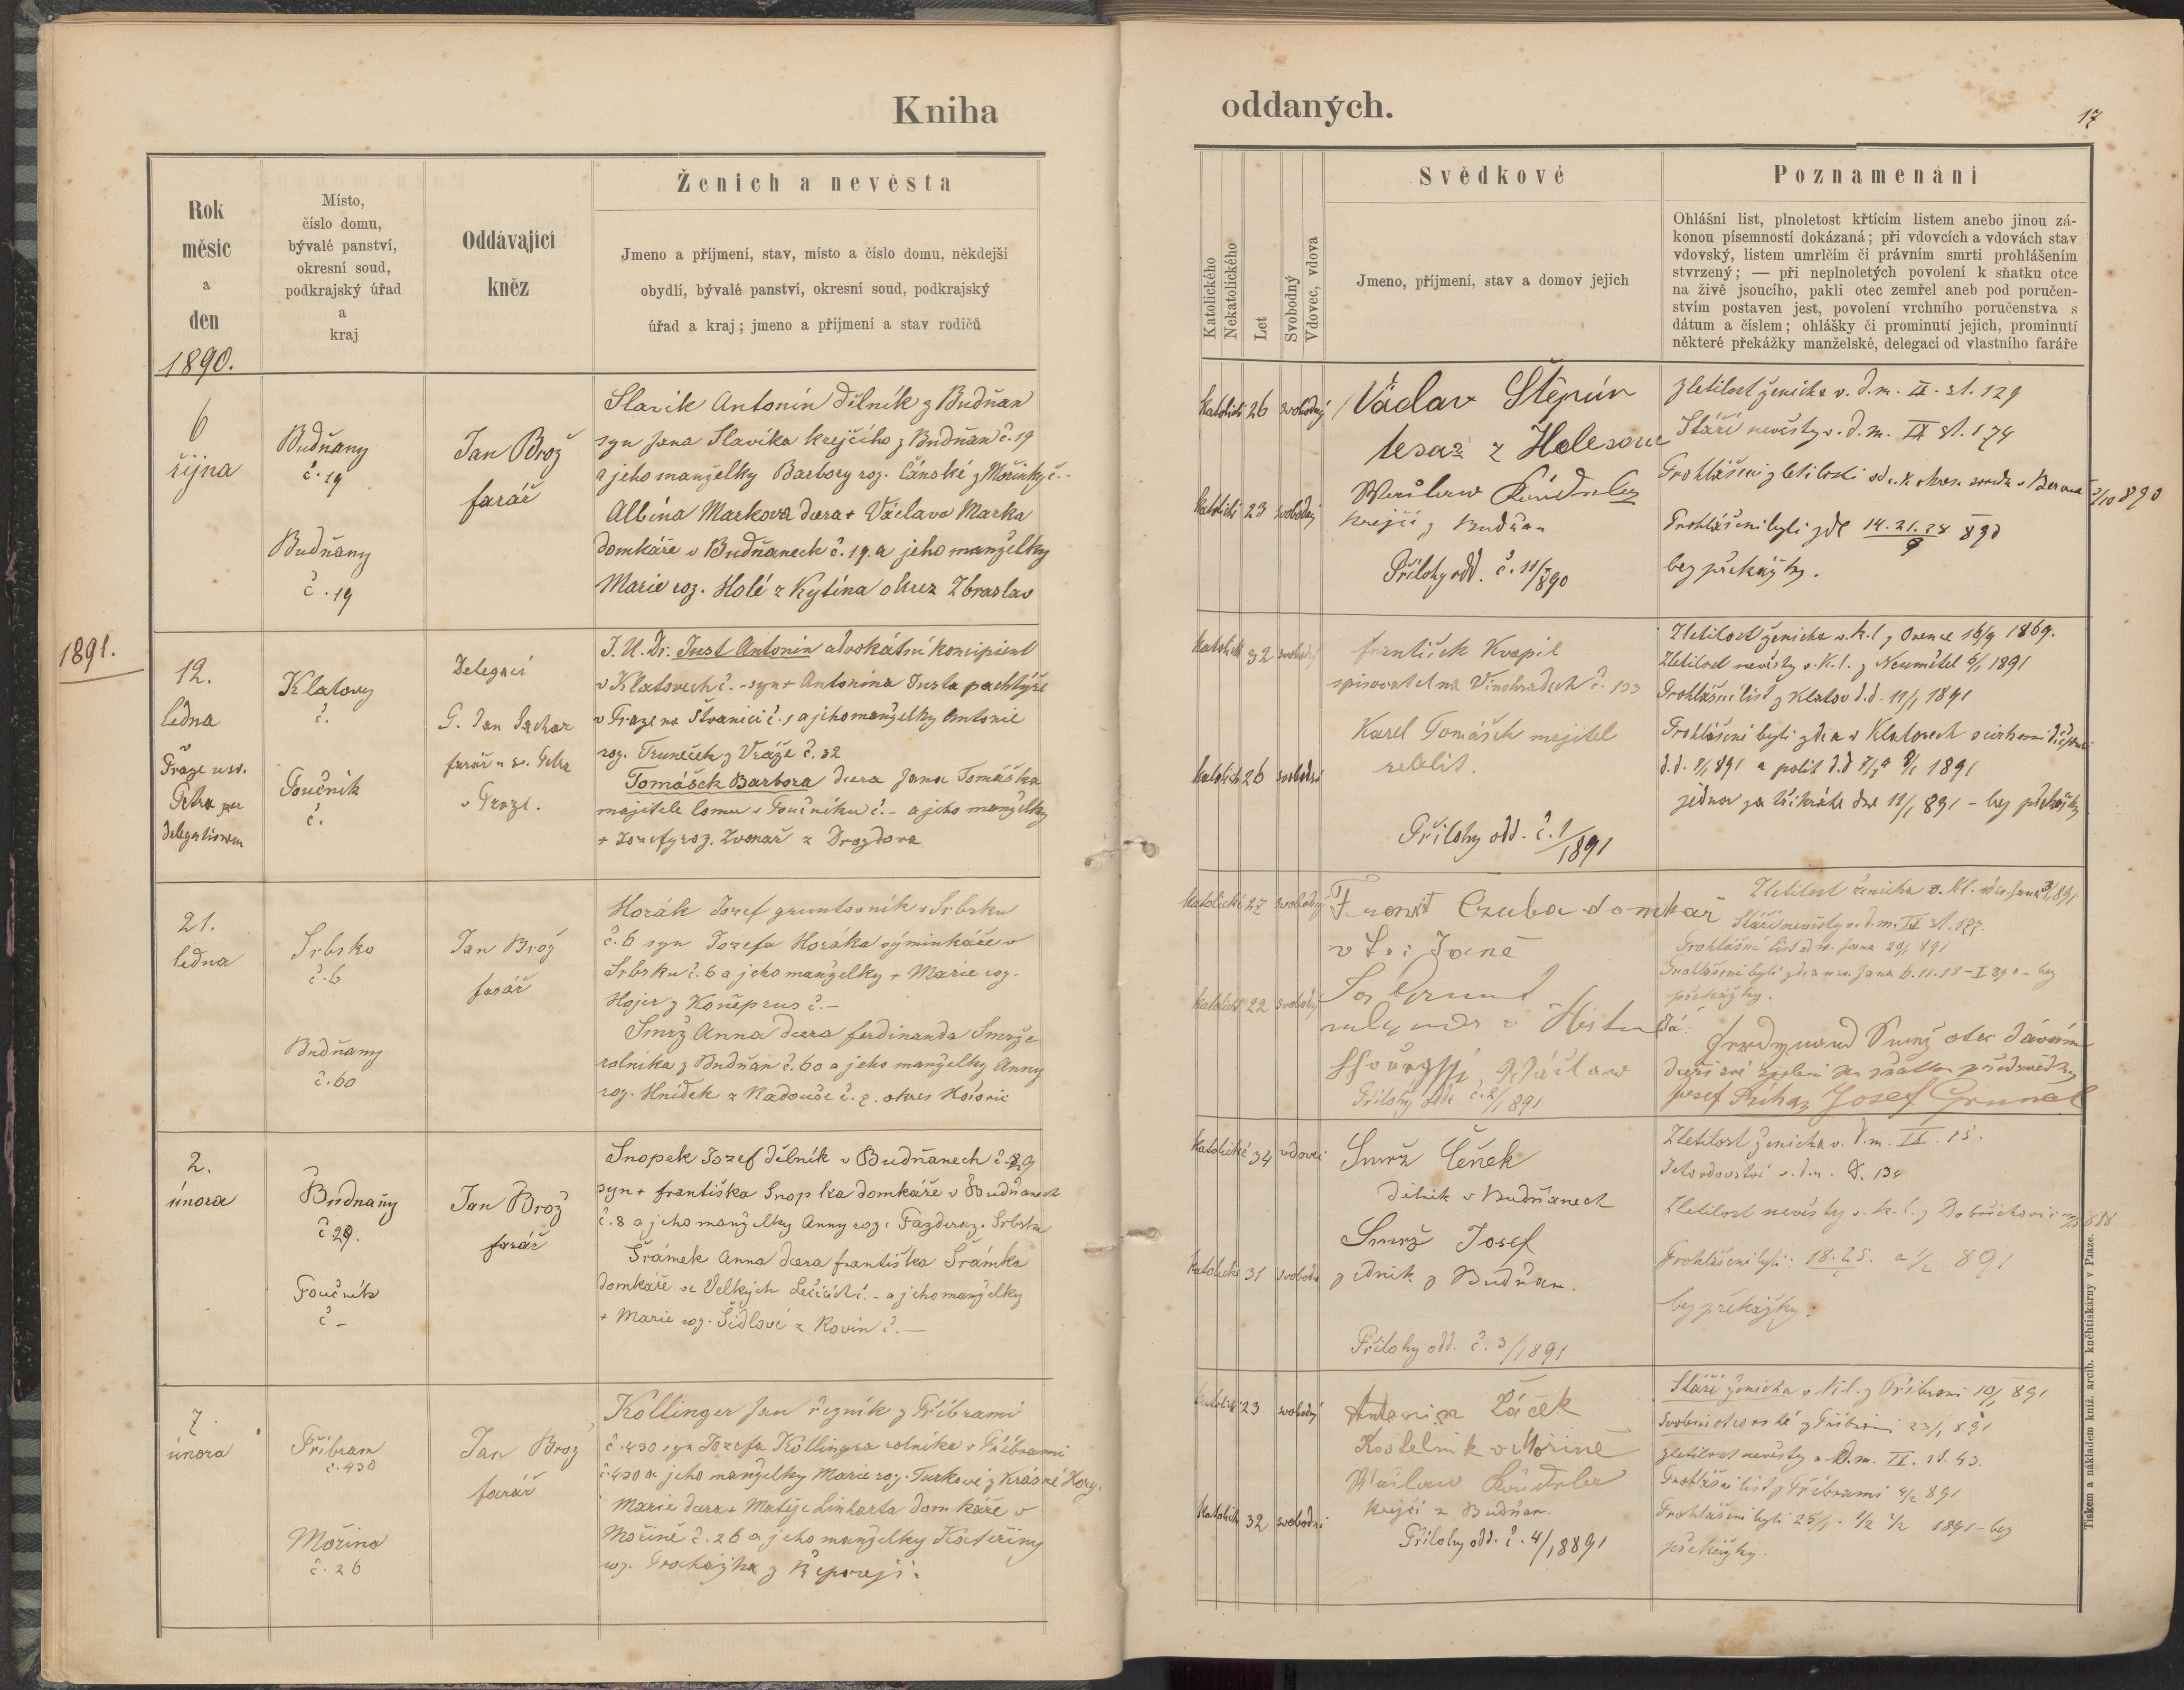 Kniha
oddaných.
17
Rok
měsíc
a
den
Místo,
číslo domu,
bývalé panství,
okresní soud,
podkrajský úřad
a
kraj
Oddávající
kněz
Ženich a nevěsta
Jmeno a příjmení, stav, místo a číslo domu, někdejší
obydlí, bývalé panství, okresní soud, podkrajský
úřad a kraj; jmeno a příjmení a stav rodičů
Katolického
Nekatolického
Let
Svobodný
Vdovec, vdova
Svědkové
Jmeno, příjmení, stav a domov jejich
Poznamenání
Ohlášní list, plnoletost křtícím listem anebo jinou zá-
konou písemností dokázaná; při vdovcích a vdovách stav
vdovský, listem umrlčím či právním smrti prohlášením
stvrzený; — při neplnoletých povolení k sňatku otce
na živě jsoucího, pakli otec zemřel aneb pod poručen-
stvím postaven jest, povolení vrchního poručenstva s
dátum a číslem; ohlášky či prominutí jejich, prominutí
některé překážky manželské, delegací od vlastního faráře
1890.
6
října
Budňany
č. 19
Budňany
č. 19
Jan Brož
farář
Slavík Antonín dělník z Budňan
syn Jana Slavíka krejčího z Budňan č. 19
a jeho manželky Barbory roz. Čánské z Mořinky č. -
Albína Markova dcera + Václava Marka
domkáře v Budňanech č. 19. a jeho manželky
Marie roz. Holé z Kytína okres Zbraslav
katolick 26 svobodný
katolick 23 svobodný
Václav Štěpán
tesař z
krejčí z Budňan
Přílohy odd. č. 11/890
Zletilost ženicha v. d. m. II. st. 129
Stáří nevěsty v. d. m. II st. 174
Prohlášení zletilosti od
Prohlášení byli zde 14. 21. 28/9 890
bez překážky.
1891.
12.
ledna
v Praze u sv.
Petra per
delegationem
Klatovy
č.
Točník
č.
Delegací
P. Jan
farář u sv. Petra
v Praze.
J. U. Dr. Just Antonín advokátní koncipient
v Klatovech č. - syn + Antonína Justa pachtýře
v Praze na Štvanici č. 1 a jeho manželky Antonie
roz. Truneček z Vráže č. 32
Tomášek Barbora dcera Jana Tomáška
majitele lomu v Točníku č. - a jeho manželky
+ Josefy roz. Zvonař z Drozdova
katolick 32 svobodný
katolick 26 svobodná
František Kvapil
spisovatel na Vinohradech č. 133
Karel Tomášek majitel
realit.
Přílohy odd. č. 1/1891
Zletilost ženicha v. k. l. z 16/9 1869.
Zletilost nevěsty v. k. l. z Neumětel 6/1 1891
Prohlášní list z Klatov d. d. 11/1 1891
Prohlášeni byli zde a v Klatovech
jednou za třikráte dne 11/1 891 - bez překážky
21.
ledna
Srbsko
č. 6
Budňany
č. 60
Jan Brož
farář
Horák Josef gruntovník v Srbsku
č. 6 syn Josefa Horáka výminkáře v
Srbsku č. 6 a jeho manželky + Marie roz.
Hájer z Koněprus č. -
Smrž Anna dcera Ferdinanda Smrže
rolníka z Budňan č. 60 a jeho manželky Anny
roz. Hnídek z Nadouše č. 2. okres Hořovic
katolické 27 svobodný
katolick 22 svobodný
domkář
Václav
Přílohy odd. č. 2/1 891
Zletilost ženicha v. kl. od sv. Jana 3/1 891
Stáří nevěsty v. d. m. II st. 177.
Prohlášní list od sv. Jana 20/1 891
Prohlášeni byli zde a u sv. Jana 6. 11. 18 - I 890 - bez
překážky.
Já:
Ferdynand Smrž otec dávám
dceři své svolení ku sňatku
Josef Říha Josef
2.
února
Budnaňy
č 29.
Točník
č -
Jan Brož
farář
Snopek Josef dělník v Budňanech č. 29
syn + Františka Snopka domkáře v Budňanech
č. 8 a jeho manželky Anny roz. Fazdera z Srbska
Šrámek Anna dcera Františka Šrámka
domkáře ve Velkých Lečicích č. - a jeho manželky
+ Marie roz. Šídlové z Rovin č. —
katolické 34 vdovec
katolické 31 svobodn
Smrž Čeněk
dělník v Budňanech
Smrž Josef
zedník z Budňan.
Přílohy odd. č. 3/1891
Zletilost ženicha v. d. m. II. 15.
v. d. m. 134
Zletilost nevěsty v. k. l. z Dobřichovic
Prohlášeni byli: 18. 25. a 1/2 891
bez překážky.
7.
února
Příbram
č. 430
Mořina
č. 26
Jan Brož
farář
Kollinger Jan řezník z Příbrami
č. 430 syn Josefa Kollingra rolníka v Příbrami
č. 430 a jeho manželky Marie roz. Turkové z Krásné Hory.
Marie dcera + Matěje Linharta domkáře v
Mořině č. 26 a jeho manželky Kateřiny
roz. Procházka z Řeporejí.
katolick 23 svobodný
katolick 32 svobodná
Antonín Žáček
Kostelník v Mořině
krejčí z Budňan.
Přílohy odd. č. 4/18891
Stáří ženicha v. k. l. z Příbrami 10/1 891
Svolení otcovské z Příbrami 23/1 891
Zletilost nevěsty v. d. m. II. st. 43.
Prohlášní list z Příbrami 4/2 891
Prohlášeni byli 25/1. 1/2 2/2 1891 - bez
překážky.
Tiskem a nákladem kníž. arcib. kněhtiskárny v Praze.